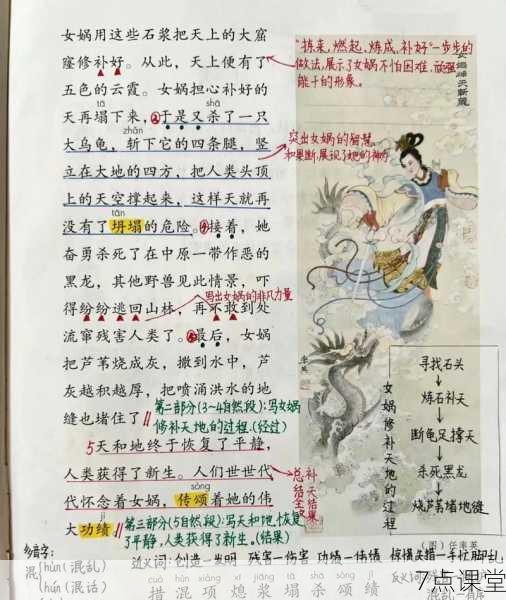 女娲用这些石浆把天上的大窟
窿修补好。从此，天上便有了
五色的云霞。女娲担心补好的
tā shā
天再塌下来，②于是又杀了一只
zhǎn
大乌龟，斩下它的四条腿，竖
立在大地的四方，把人类头顶
上的天空撑起来，这样天就再
tān
没有了坍塌的危险。接着，她
奋勇杀死了在中原一带作恶的
黑龙，其他野兽见此情景，吓
得纷纷逃回山林，再不敢到处
写出女娲的非凡力量
流窜残害人类了。最后，女娲
把芦苇烧成灰，撒到水中，芦
灰越积越厚，把喷涌洪水的地
缝也堵住了
第二部分(3~4自然段):写女娲
修补天地的过程.(经过)
5天和地终于恢复了平静，
人类获得了新生。人们世世代
sòng
代怀念着女娲，传颂着她的伟
jì
大功绩
第三部分(5自然段):写天和地恢复
了平静,人类获得了新生.(结果)
总结全文
补天结果
"拣来,燃起,炼成,补好"一步步的
做法,展示了女娲不怕困难,顽强
能干的形象。
突出女娲的智慧
和果断,展现了她的神力
女娲补天新筑
李英
女娲修补天地的过程
寻找石头
炼石补天
断龟足撑天
杀死黑龙
烧芦苇堵地缝
(图)任率英
多音字:
混
hùn(混乱)
hún(混话)
近义词: 创造一发明 残害一伤害 功绩一伟绩 惊慌失措一手忙脚乱
反义词
混乱一有序
cuò hùn xiàng xī jiāng tā shā sòng jì
措 混 项 熄 浆 塌 杀 颂 绩
7点课堂